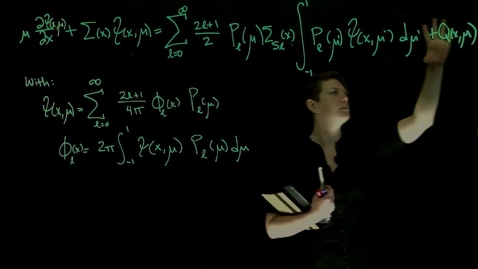 μ ∂Ψ(x,μ)/∂x + Σ(x)Ψ(x,μ) = ∑_{l=0}^{∞} (2l+1)/2 P_l(μ) Σ_{sl}(x) ∫_{-1}^{1} P_l(μ') Ψ(x,μ') dμ' + Q(x,μ)
With:
Ψ(x,μ) = ∑_{l=0}^{∞} (2l+1)/4π ϕ_l(x) P_l(μ)
ϕ_l(x) = 2π ∫_{-1}^{1} Ψ(x,μ) P_l(μ) dμ